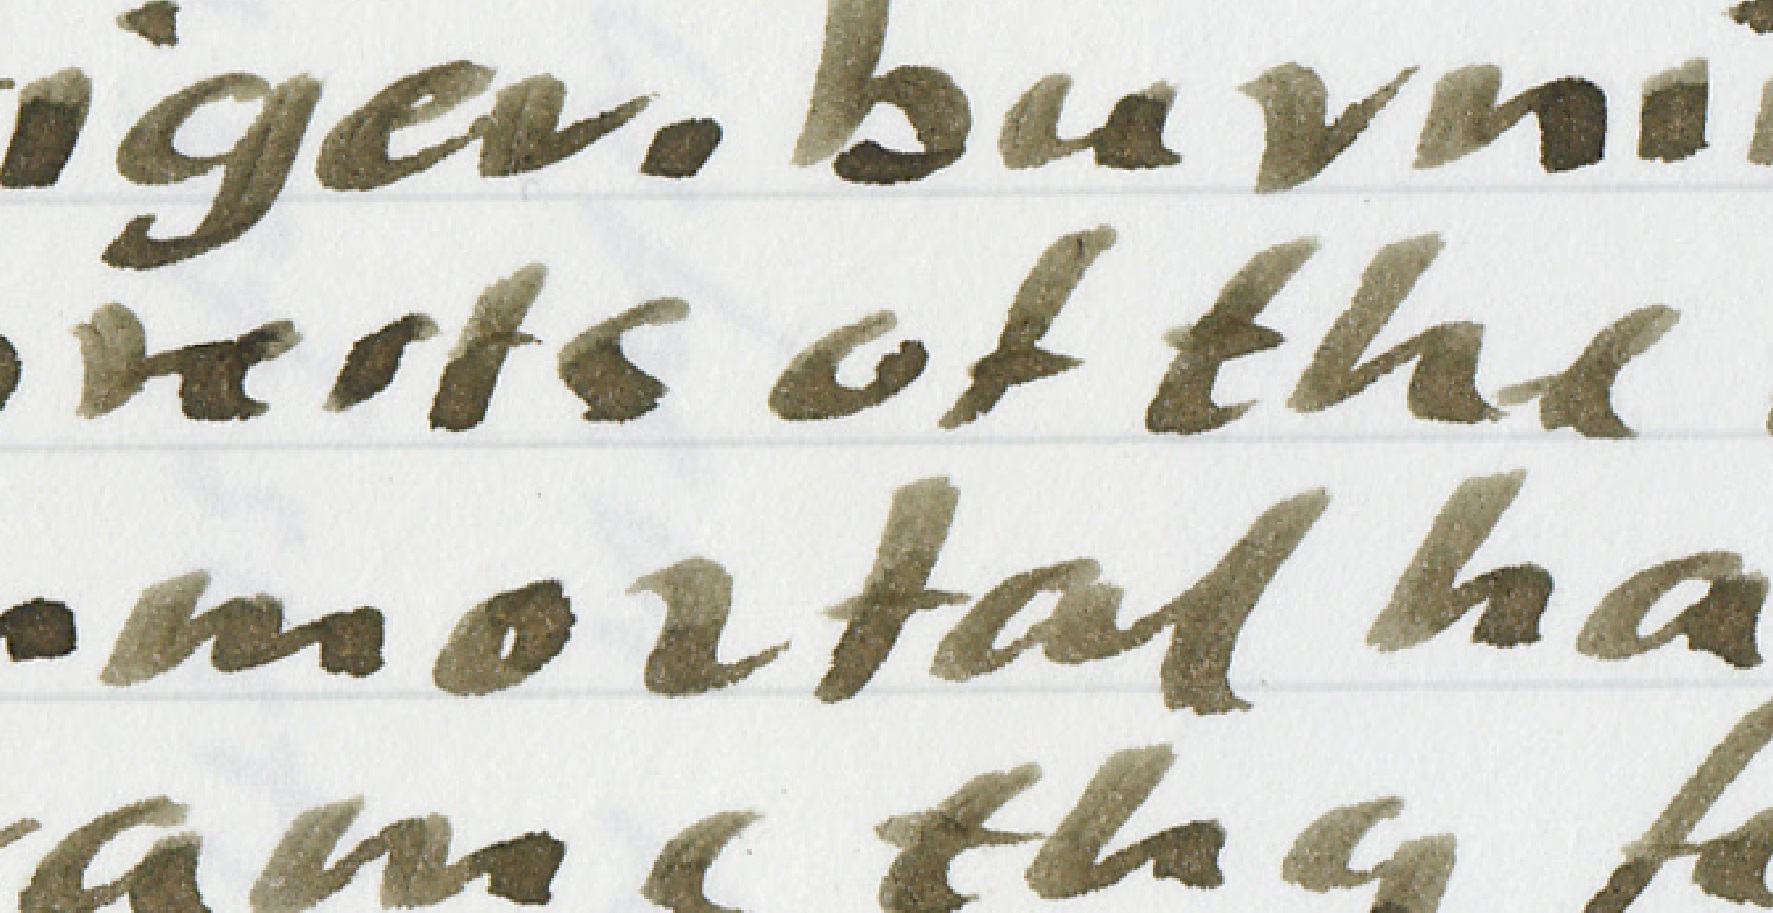 iger. burni
rests of the
mortal ha
rame thy f